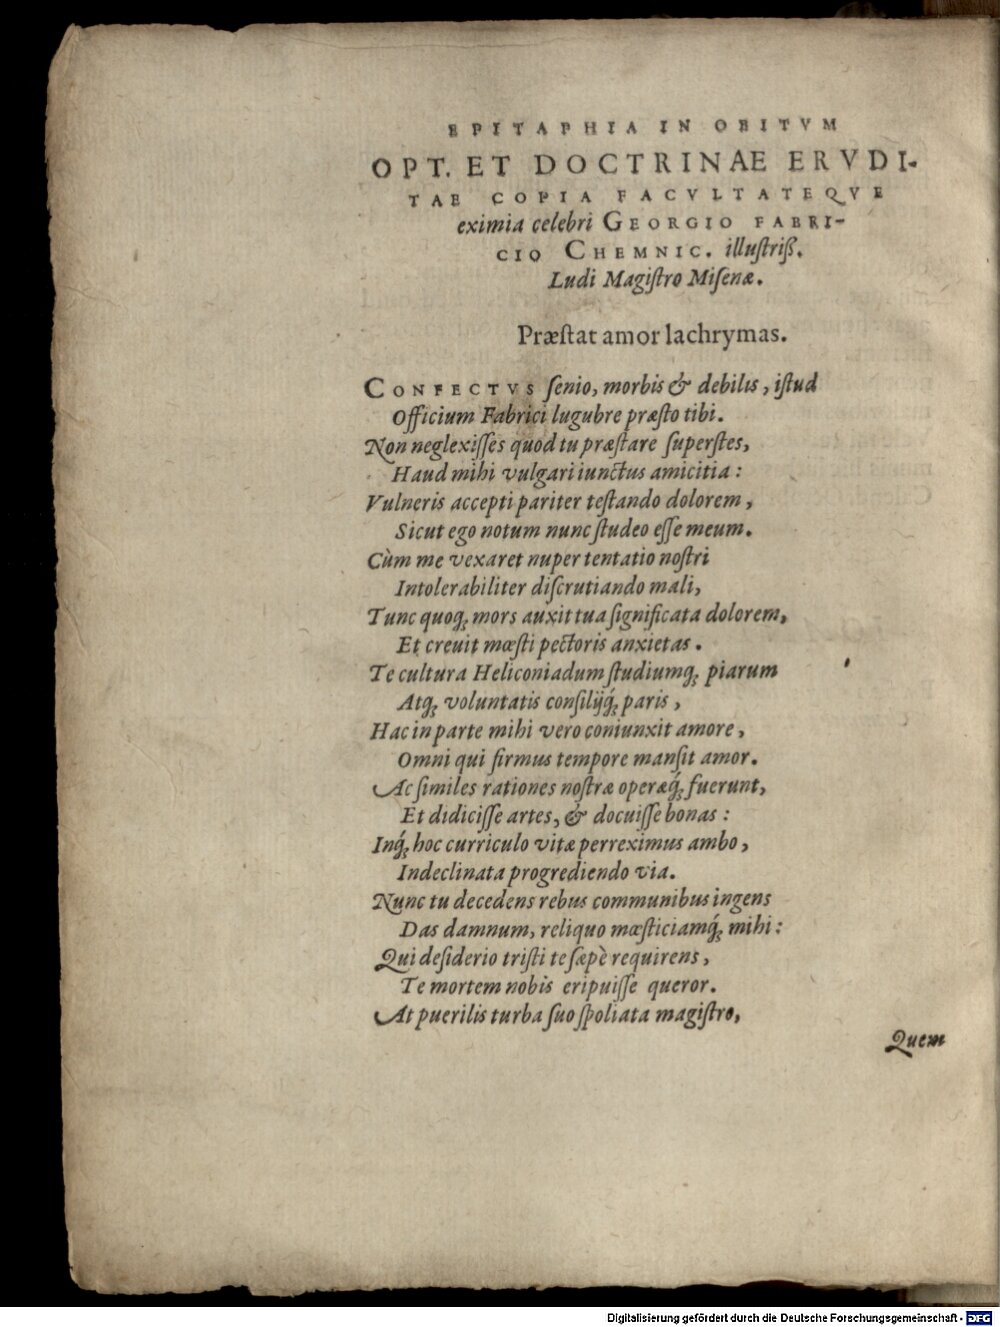 EPITAPHIA IN OBITVM
OPT. ET DOCTRINAE ERVDI-
TAE COPIA FACVLTATEQVE
eximia celebri GEORGIO FABRI-
CIO CHEMNIC. illuſtriß.
Ludi Magiſtro Miſenæ.
Præſtat amor lachrymas.
CONFECTVS ſenio, morbis & debilis, iſtud
Officium Fabrici lugubre præſto tibi.
Non neglexiſſes quod tu præſtare ſuperſtes,
Haud mihi vulgari iunctus amicitia:
Vulneris accepti pariter teſtando dolorem,
Sicut ego notum nunc ſtudeo eſſe meum.
Cùm me vexaret nuper tentatio noſtri
Intolerabiliter diſcrutiando mali,
Tunc quoq; mors auxit tua ſignificata dolorem,
Et creuit mœſti pectoris anxietas.
Te cultura Heliconiadum ſtudiumq; piarum
Atq; voluntatis conſilijq́; paris,
Hac in parte mihi vero coniunxit amore,
Omni qui firmus tempore manſit amor.
Ac ſimiles rationes noſtræ operæq́; fuerunt,
Et didiciſſe artes, & docuiſſe bonas:
Inq́; hoc curriculo vitæ perreximus ambo,
Indeclinata progrediendo via.
Nunc tu decedens rebus communibus ingens
Das damnum, reliquo mœſticiamq́; mihi:
Qui deſiderio triſti te ſæpè requirens,
Te mortem nobis eripuiſſe queror.
At puerilis turba ſuo ſpoliata magiſtro,
Quem
Digitalisierung gefördert durch die Deutsche Forschungsgemeinschaft - DFG